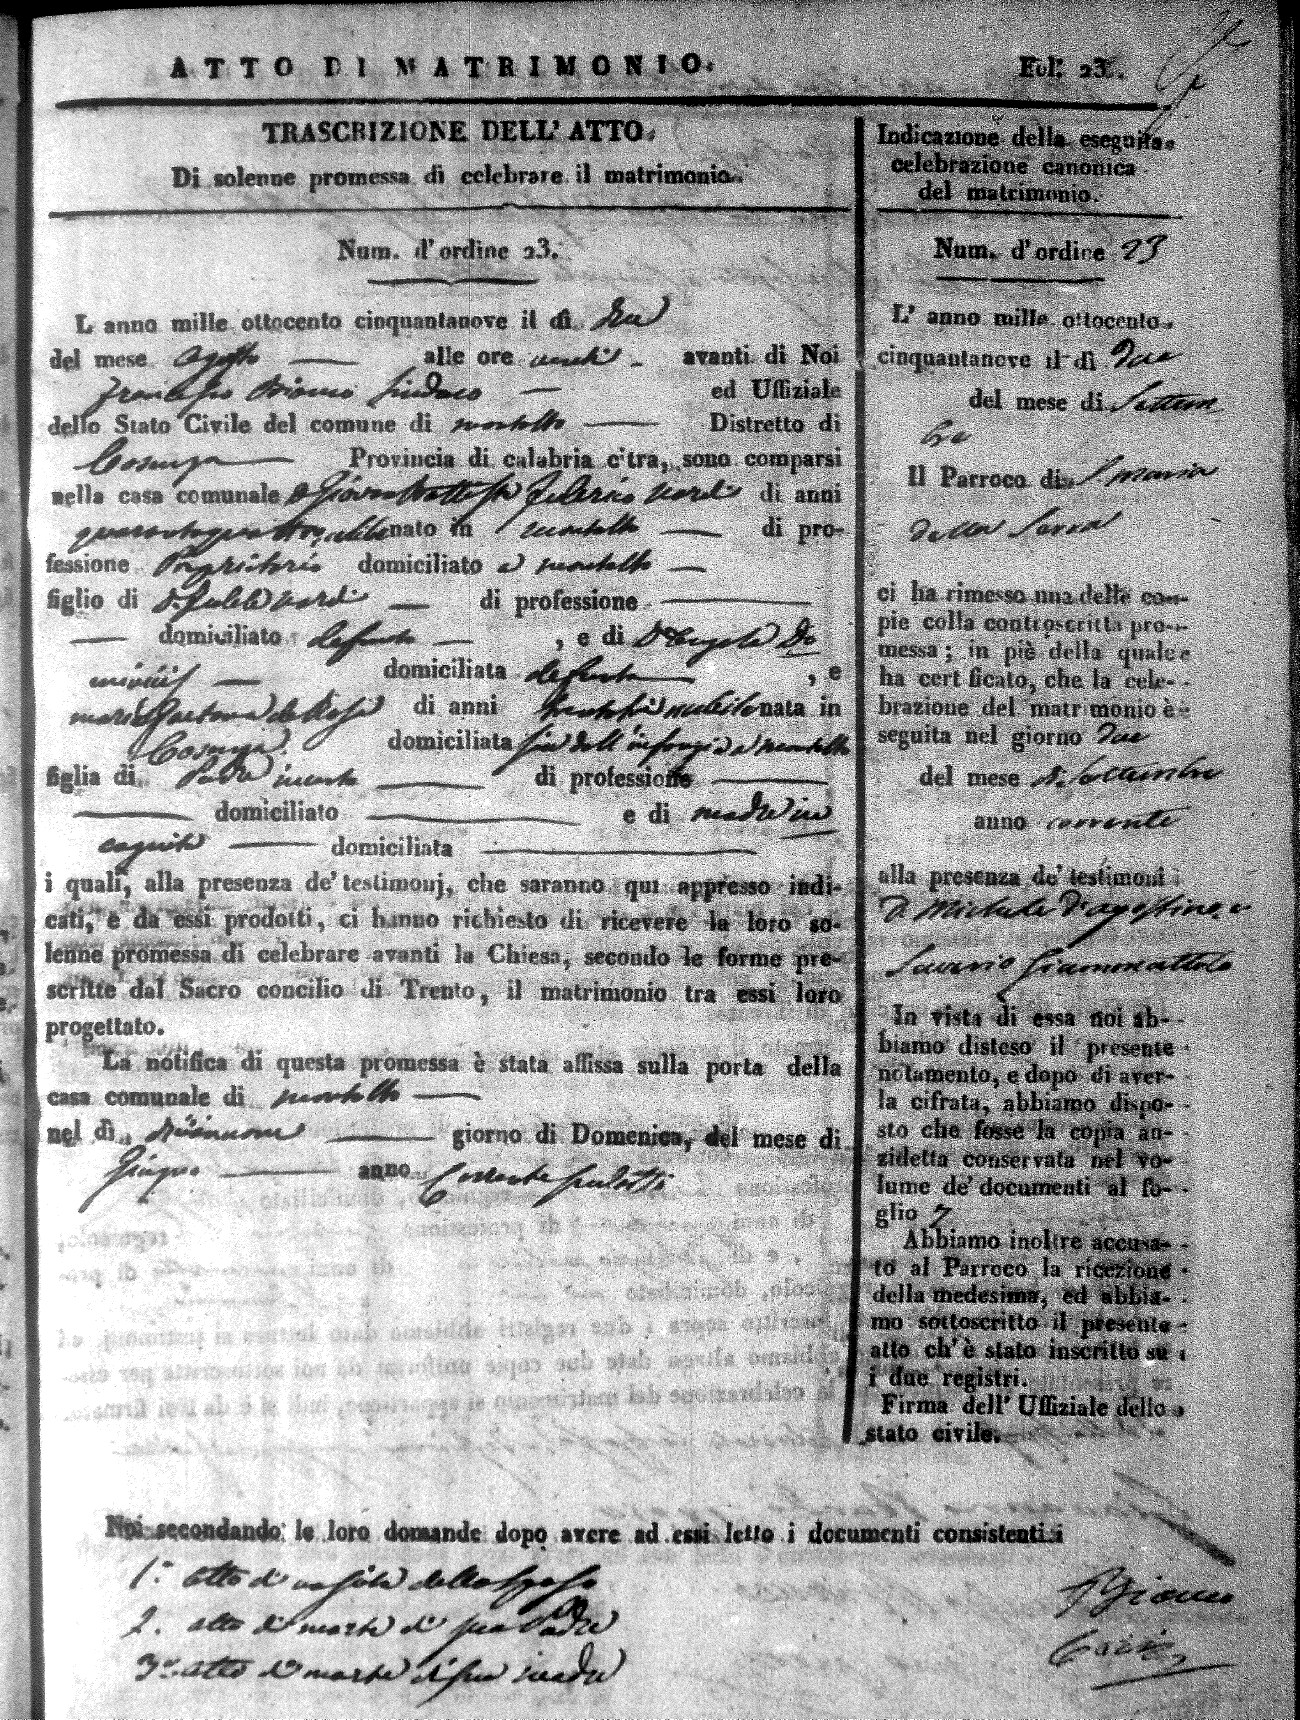 ATTO DI MATRIMONIO.
Fol. 23.
TRASCRIZIONE DELL' ATTO.
Di solenne promessa di celebrare il matrimonio.
Num. d'ordine 23.
L anno mille ottocento cinquantanove il dì due
del mese Agosto alle ore venti avanti di Noi
Francesco Sindaco ed Uffiziale
dello Stato Civile del comune di Montalto Distretto di
Cosenza Provincia di calabria citra, sono comparsi
nella casa comunale D. Giovan Battista Federico Nardi di anni
quarantaquattro, celibe nato in Montalto di pro-
fessione Proprietario domiciliato a Montalto
figlio di D. Nardi di professione
domiciliato defunto , e di D. Angela Do
minicis domiciliata defunta , e
Maria Gaetana de Rosa di anni trentatre nubile nata in
Cosenza domiciliata sin dall'infanzia a Montalto
figlia di Padre incerto di professione
domiciliato e di madre in
cognita domiciliata
i quali, alla presenza de' testimonj, che saranno qui appresso indi-
cati, e da essi prodotti, ci hanno richiesto di ricevere la loro so-
lenne promessa di celebrare avanti la Chiesa, secondo le forme pre-
scritte dal Sacro concilio di Trento, il matrimonio tra essi loro
progettato.
La notifica di questa promessa è stata affissa sulla porta della
casa comunale di Montalto
nel dì diciannove giorno di Domenica, del mese di
Giugno anno Corrente
Noi secondando le loro domande dopo avere ad essi letto i documenti consistenti i
1.° atto di nascita dello sposo
2. atto di morte di suo Padre
3.° atto di morte di sua madre
Indicazione della eseguita
celebrazione canonica
del matrimonio.
Num. d'ordine 23
L' anno mille ottocento
cinquantanove il dì due
del mese di Settem
bre
Il Parroco di S. Maria
della Serra
ci ha rimesso una delle co-
pie colla controscritta pro-
messa; in piè della quale
ha cert ficato, che la cele-
brazione del matr monio è
seguita nel giorno due
del mese di Settembre
anno corrente
alla presenza de' testimoni
D. Michele D'Agostino, e
Saverio Giammattolo
In vista di essa noi ab-
biamo disteso il presente
notamento, e dopo di aver-
la cifrata, abbiamo dispo-
sto che fosse la copia an-
zidetta conservata nel vo-
lume de' documenti al fo-
glio 7
Abbiamo inoltre accusa-
to al Parroco la ricezione
della medesima, ed abbia-
mo sottoscritto il presente
atto ch' è stato inscritto su
i due registri.
Firma dell' Uffiziale dello
stato civile.